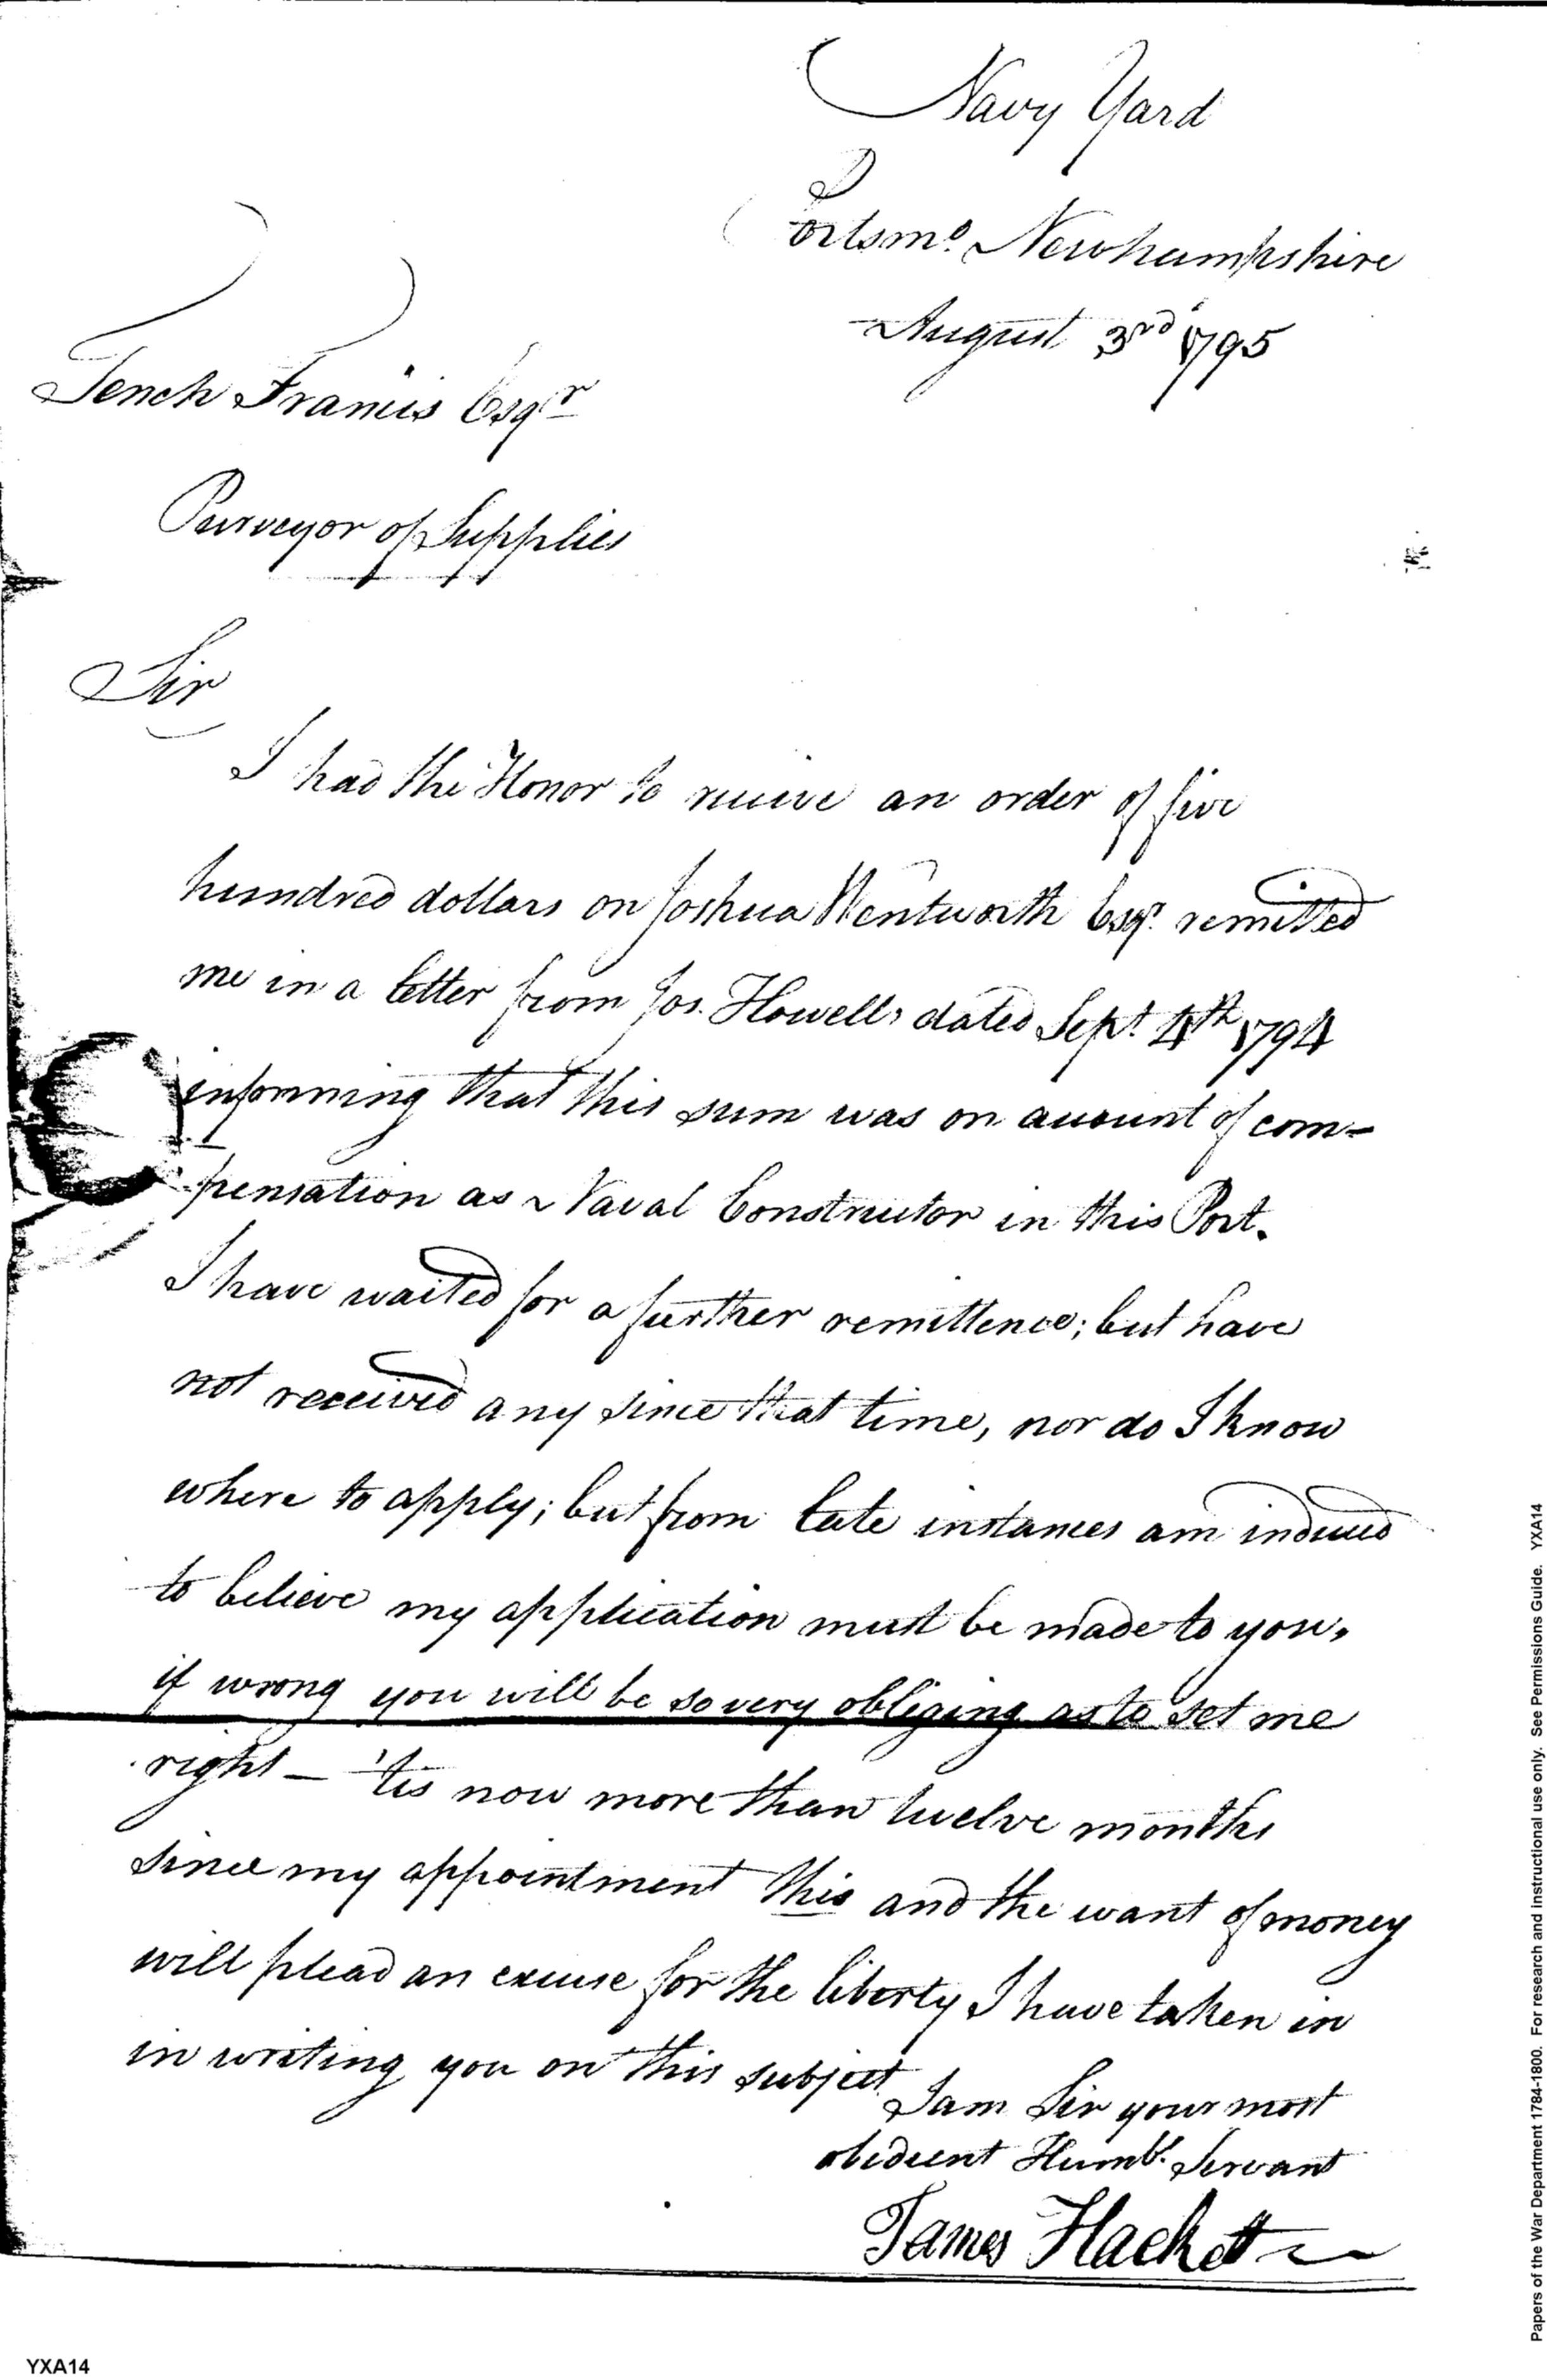 Navy Yard
Portsmo. Newhampshire
August 3rd 1795
Tench Francis Esqr
Purveyor of Supplies
Sir
I had the Honor to receive an order of five
hundred dollars on Joshua Wentworth Esqr. remitted
me in a letter from Jos. Howell, dated Sept. 4th 1794
informing that this sum was on account of com-
pensation as Naval Constructor in this Port.
I have waited for a further remittence; but have
not received any since that time, nor do I know
where to apply; but from late instances am induced
to believe my application must be made to you,
if wrong you will be so very obliging as to set me
right - 'tis now more than twelve months
since my appointment this and the want of money
will plead an excuse for the liberty I have taken in
in writing you on this subject
I am Sir your most
obedient Humbl. Servant
James Hackett
Papers of the War Department 1784-1800. For research and instructional use only. See Permissions Guide. YXA14
YXA14